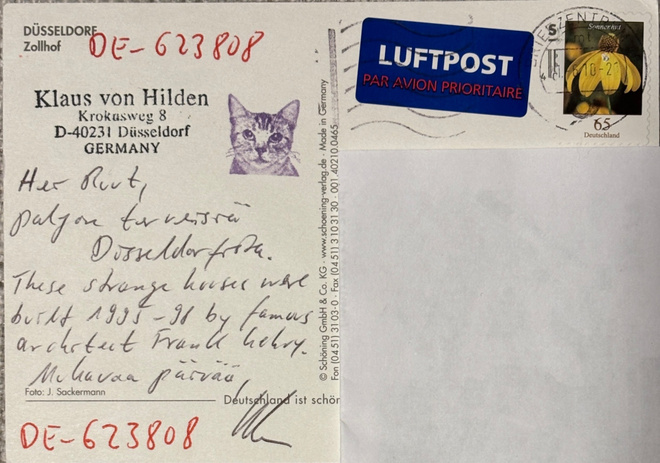 DÜSSELDORF
Zollhof
DE-623808
Klaus von Hilden
Krokusweg 8
D-40231 Düsseldorf
GERMANY
paljon terveisiä
Düsseldorfista.
These strange houses were
built 1995-98 by famous
architect Frank Gehry.
Mukavaa päivää,
Foto: J. Sackermann
Deutschland ist schön
DE-623808
© Schöning GmbH & Co. KG · www.schoening-verlag.de · Made in Germany
Fon (04 51) 31 03-0 · Fax (04 51) 3 10 31 30 · 001 40210 0465
LUFTPOST
PAR AVION PRIORITAIRE
BRIEFZENTRUM
Sonnenhut
65
Deutschland